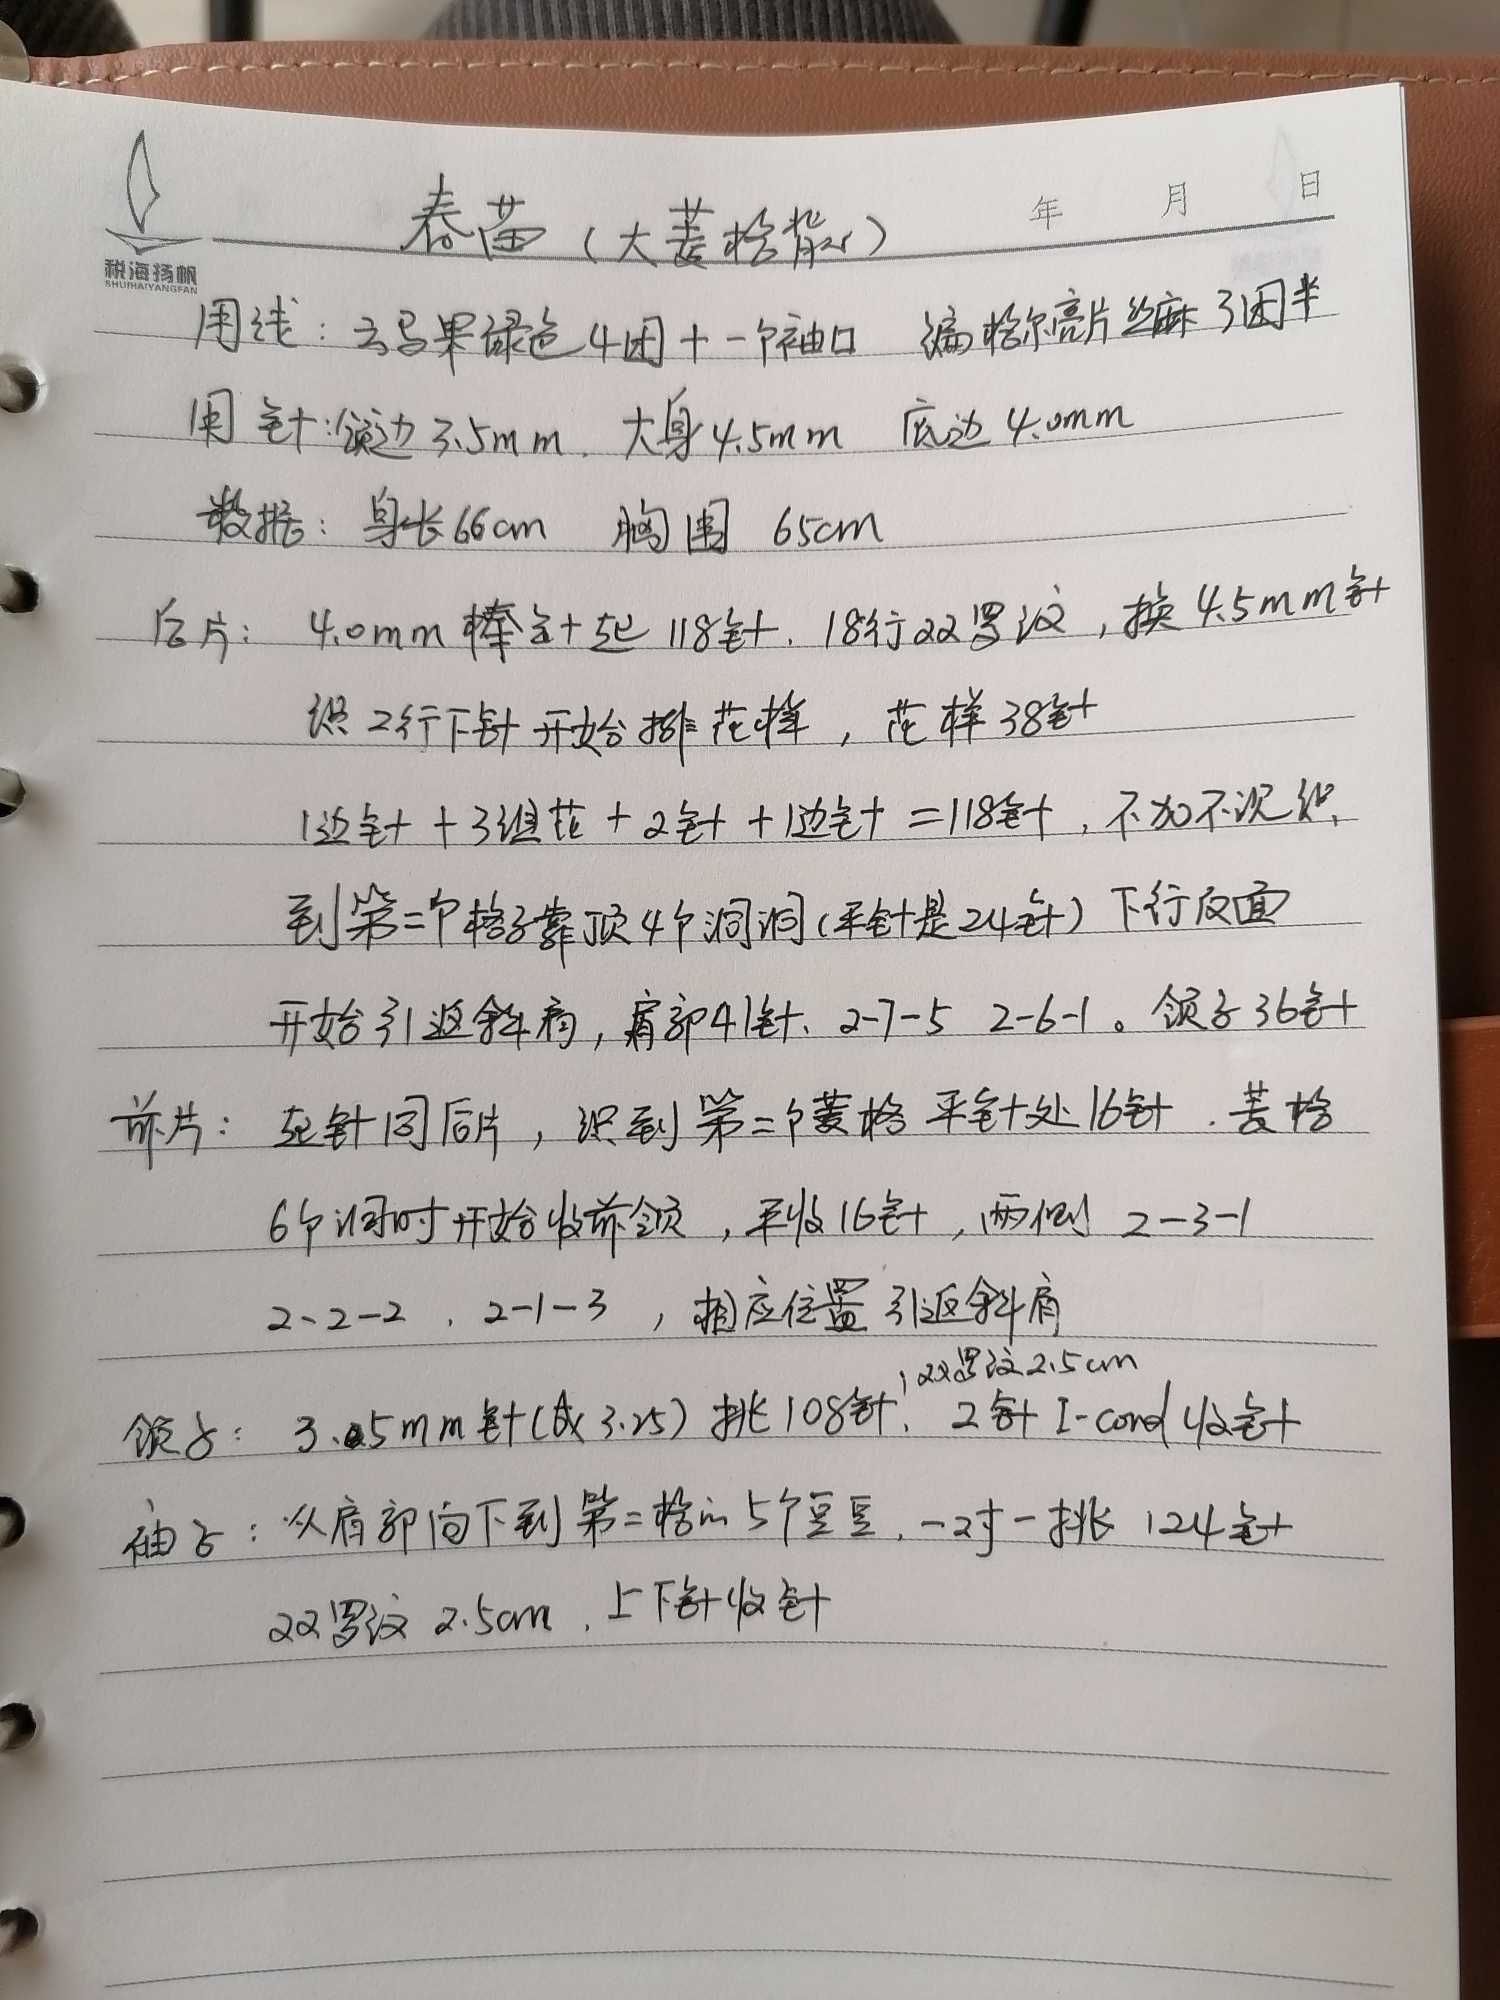 年 月 日
春苗（大菱格背心）
税海扬帆
SHUIHAIYANGFAN
用线：云马果绿色4团+一个袖口 编格尔亮片丝麻3团半
用针：领边3.5mm、大身4.5mm 底边4.0mm
数据：身长66cm 胸围 65cm
后片：4.0mm棒针起118针、18行22罗汶，换4.5mm针
织2行下针开始排花样，花样38针
1边针+3组花+2针+1边针=118针，不加不减织、
到第二个格子靠顶4个洞洞（平针是24针）下行反面
开始引返斜肩，肩部41针、2-7-5 2-6-1。领子36针
前片：起针同后片，织到第二个菱格平针处16针、菱格
6个洞时开始收前领，平收16针，两侧 2-3-1
2-2-2、2-1-3，相应位置引返斜肩
，22罗汶2.5cm
领子：3.5mm针（或3.25）挑108针、2针I-cord收针
袖子：从肩部向下到第二格的5个豆豆、一对一挑124针
22罗汶2.5cm、上下针收针